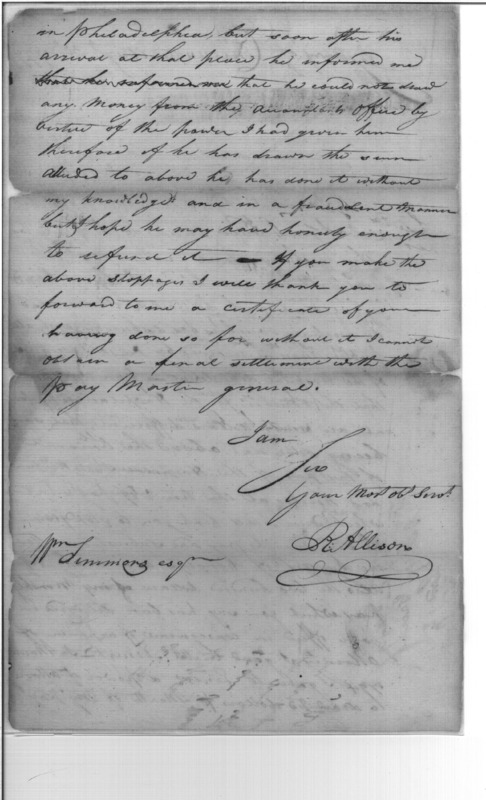 in Philadelphia, but soon after his
arrival at that place he informed me
that he informed me that he could not draw
any Money from the accountants office by
virtue of the power I had given him
therefore if he has drawn the sum
alluded to above he, has done it without
my knowledge and in a fraudulent manner
but I hope he may have honesty enough
to refund it — If you make the
above stoppages I will thank you to
forward to me a certificate of your
having done so for without it I cannot
obtain a final settlement with the
Pay Master general.
I am
Sir
Your Most ob Servt
R Allison
Wm Simmons esqr